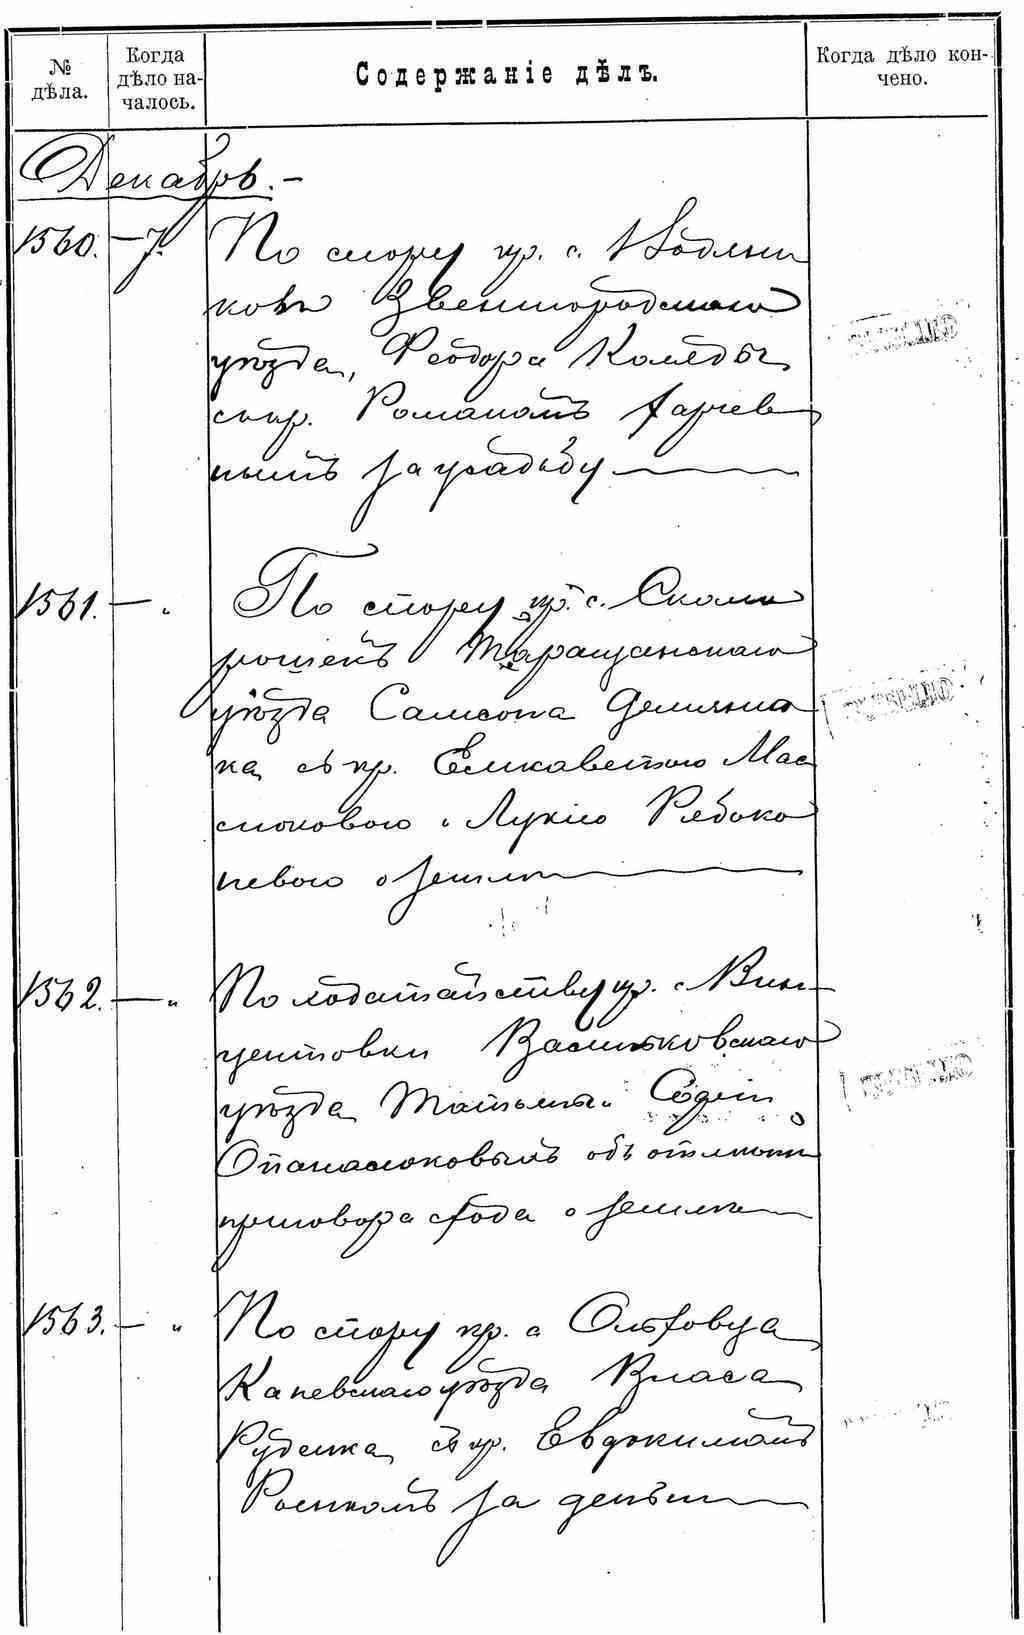 № дѣла.
Когда дѣло на-
чалось.
Содержаніе дѣлъ.
Когда дѣло кон-
чено.
Декабрь.-
1560. — 7. По спору кр. с.
ковъ Звенигородскаго
уѣзда, Феодора Коляды
съ кр. Романомъ Харчев
нымъ за усадьбу
1561. — „ По спору кр. с. Скомо
рошекъ Таращанскаго
уѣзда Самсона Демяню
ка съ кр. Елисаветою Мас
люковою и Лукіею Рябоко
невою о землѣ
1562. — „ По ходатайству кр. с. Вин-
центовки Васильковскаго
уѣзда Татьяны и
Опанасюковымъ объ отмѣнѣ
приговора схода о землѣ
1563. — „ По спору кр. с. Ольховца
Каневскаго уѣзда Власа
Руденка съ кр. Евдокимомъ
за деньги